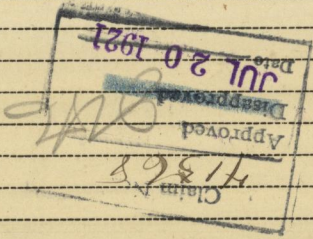 Claim No
71368
Approved
Disapproved
Date JUL 20 1921